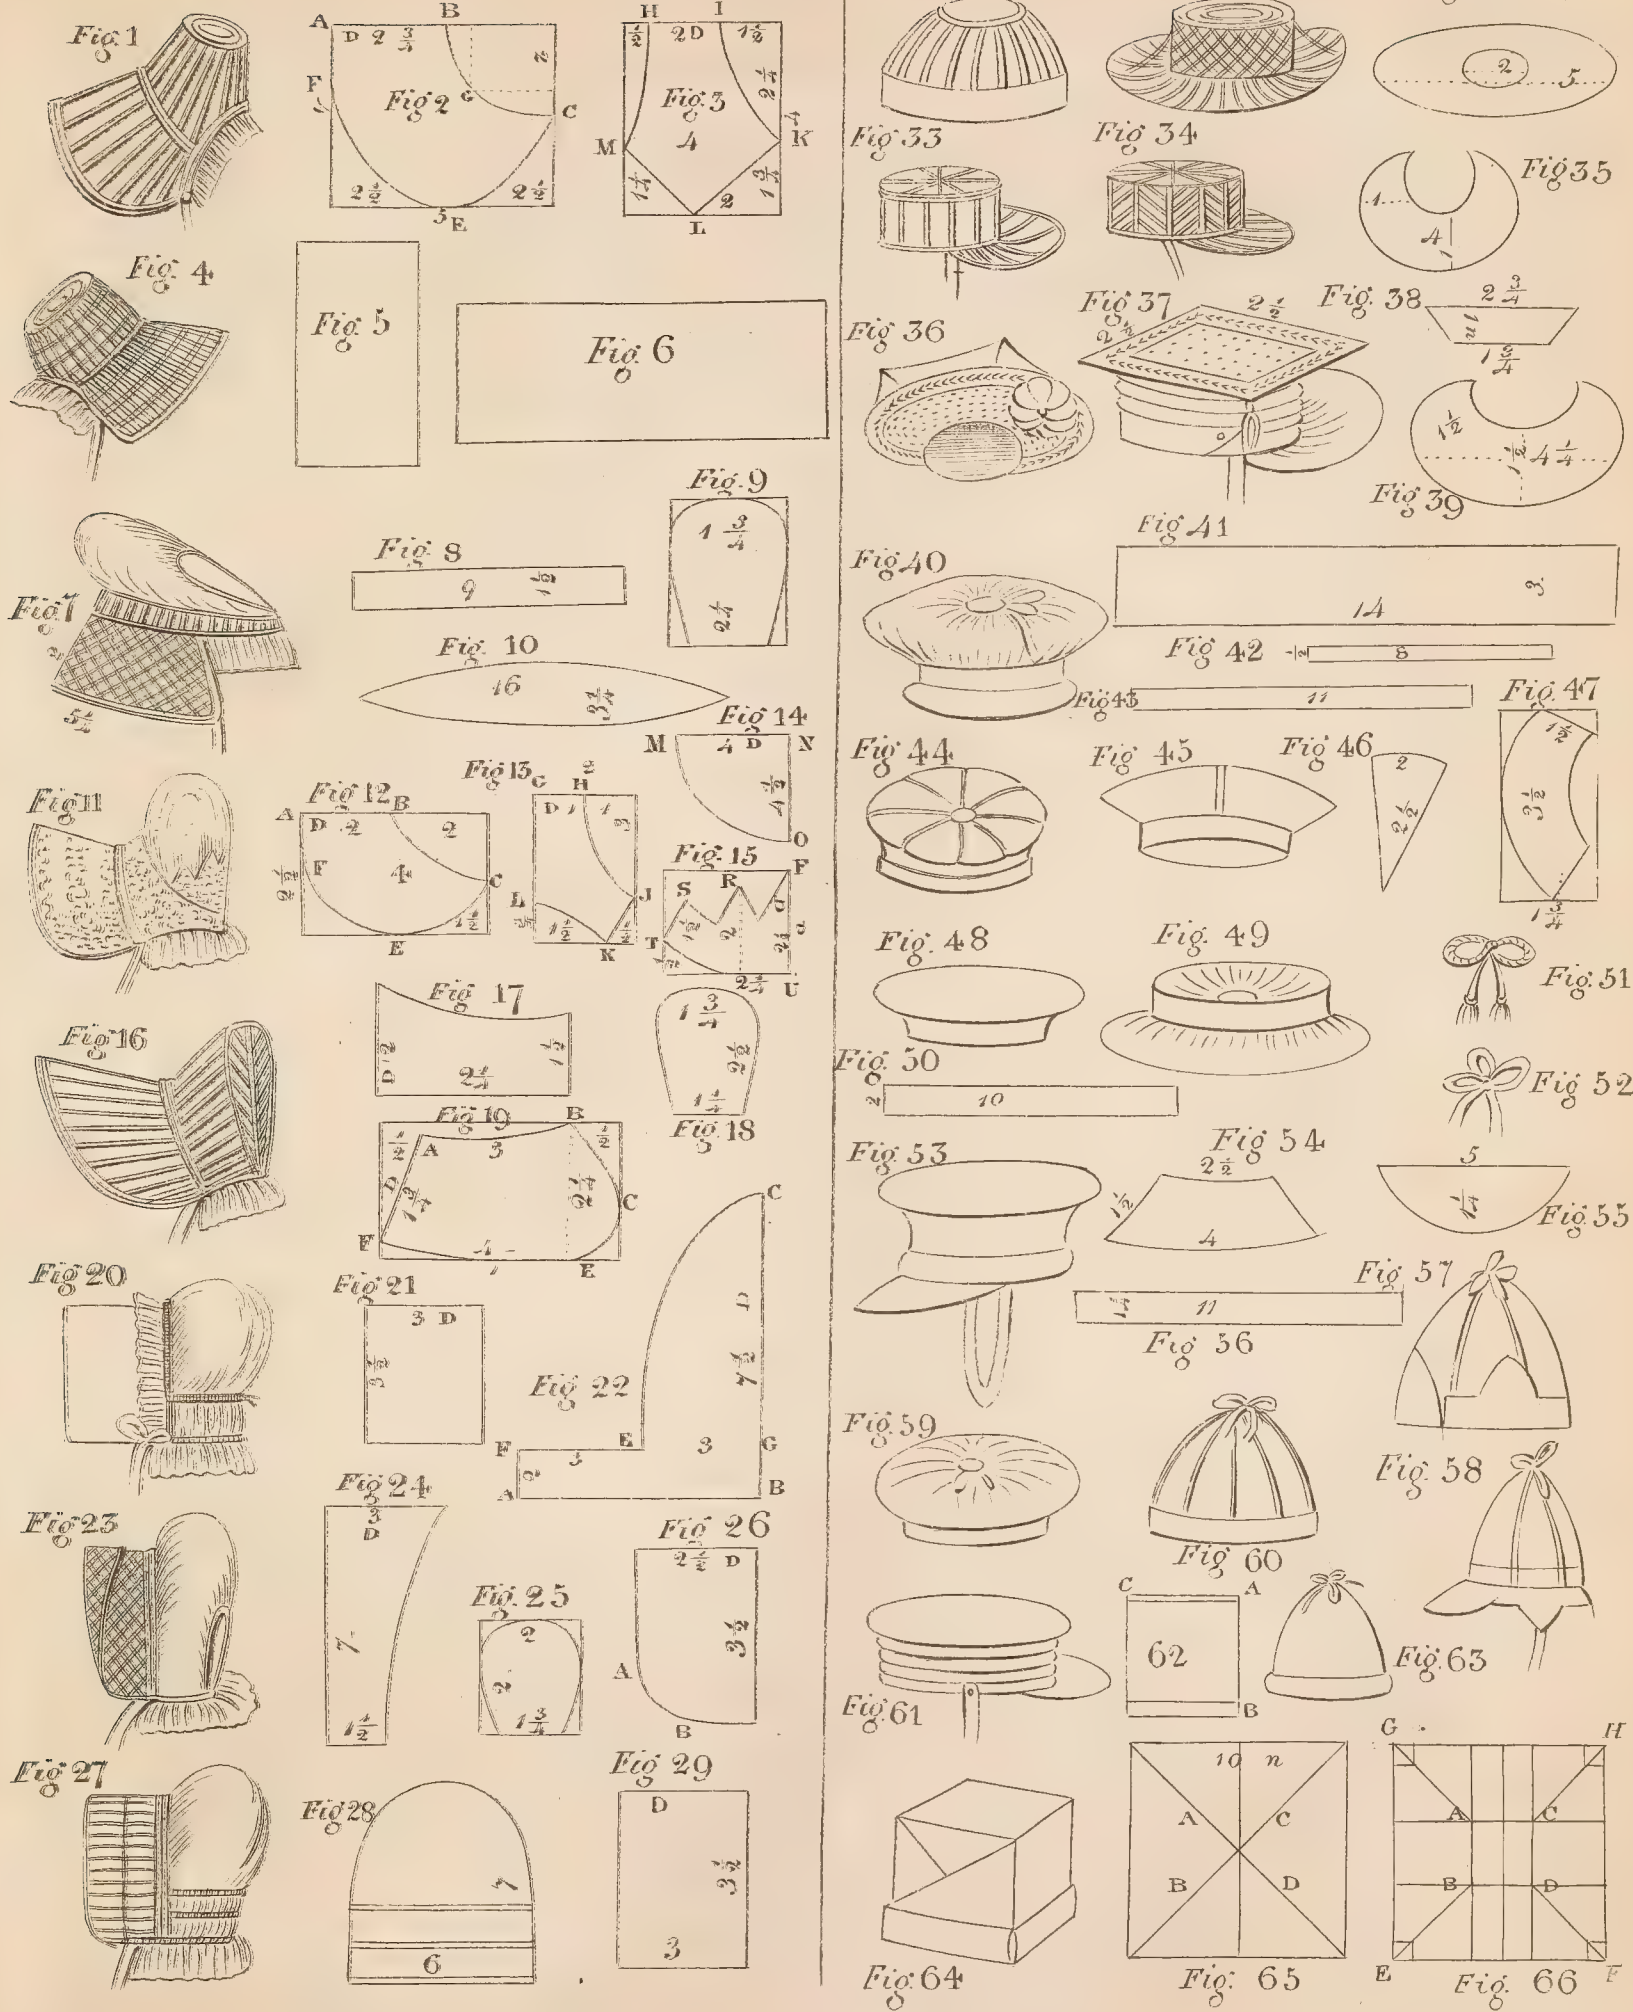 Fig. 1
A B
D 2 3/4 2
F
Fig 2 G C
2 1/2 2 1/2
5 E
H I
1/2 2 D 1 1/2
2 1/4
Fig 3
4 4
M K
1 1/4 2 1 3/4
L
Fig. 4
Fig. 5
Fig. 6
Fig. 7
2
5 1/4
Fig 8
9 1 1/2
Fig. 9
1 3/4
2 1/4
Fig. 10
16 3 1/4
Fig 11
Fig 12
A B
D 2 2
F 4 C
2 1/2 1 1/2
E
Fig 13
G H 2
D 1 1 3
L J
1 1/2 1/2
K
Fig 14
M 4 D N
4 1/2
O
Fig. 15
F
S R
T 1 1/2 2 2 1/4 d
2 1/4 U
Fig 16
Fig 17
D 2 1 1/2
2 1/4
1 3/4
2 1/2
1 1/4
Fig 18
Fig 19
B
1/2 A 3 1/2
D 1 3/4 2 1/4 C
F 4
E
Fig 20
Fig 21
3 D
3 1/2
Fig 22
C
D
7 1/2
F E 3 G
2 3
A B
Fig 23
Fig 24
3
D
7
1 1/2
Fig. 25
2
2
1 3/4
Fig 26
2 1/2 D
3 1/2
A
B
Fig 27
Fig 28
7
6
Fig 29
D
3 1/2
3
2 5
Fig 33
Fig 34
Fig 35
1
4
1
Fig 36
Fig 37
2 1/2 2 1/2
Fig. 38
2 3/4
n 1
1 3/4
1 1/2
1 1/2 4 1/4
Fig 39
Fig 40
Fig 41
14 3
Fig 42 1/2 8
Fig 43 11
Fig. 44
Fig 45
Fig 46
2
2 1/2
Fig. 47
1 1/2
3 1/2
1 3/4
Fig. 48
Fig. 49
Fig. 50
2 10
Fig. 51
Fig 52
Fig. 53
Fig 54
2 1/2
1 1/2
4
5
1 1/4
Fig. 55
1 1/4 11
Fig 56
Fig. 57
Fig. 58
Fig. 59
Fig 60
Fig. 61
C A
62
B
Fig. 63
Fig. 64
10 n
A C
B D
Fig. 65
G H
A C
B D
E F
Fig. 66